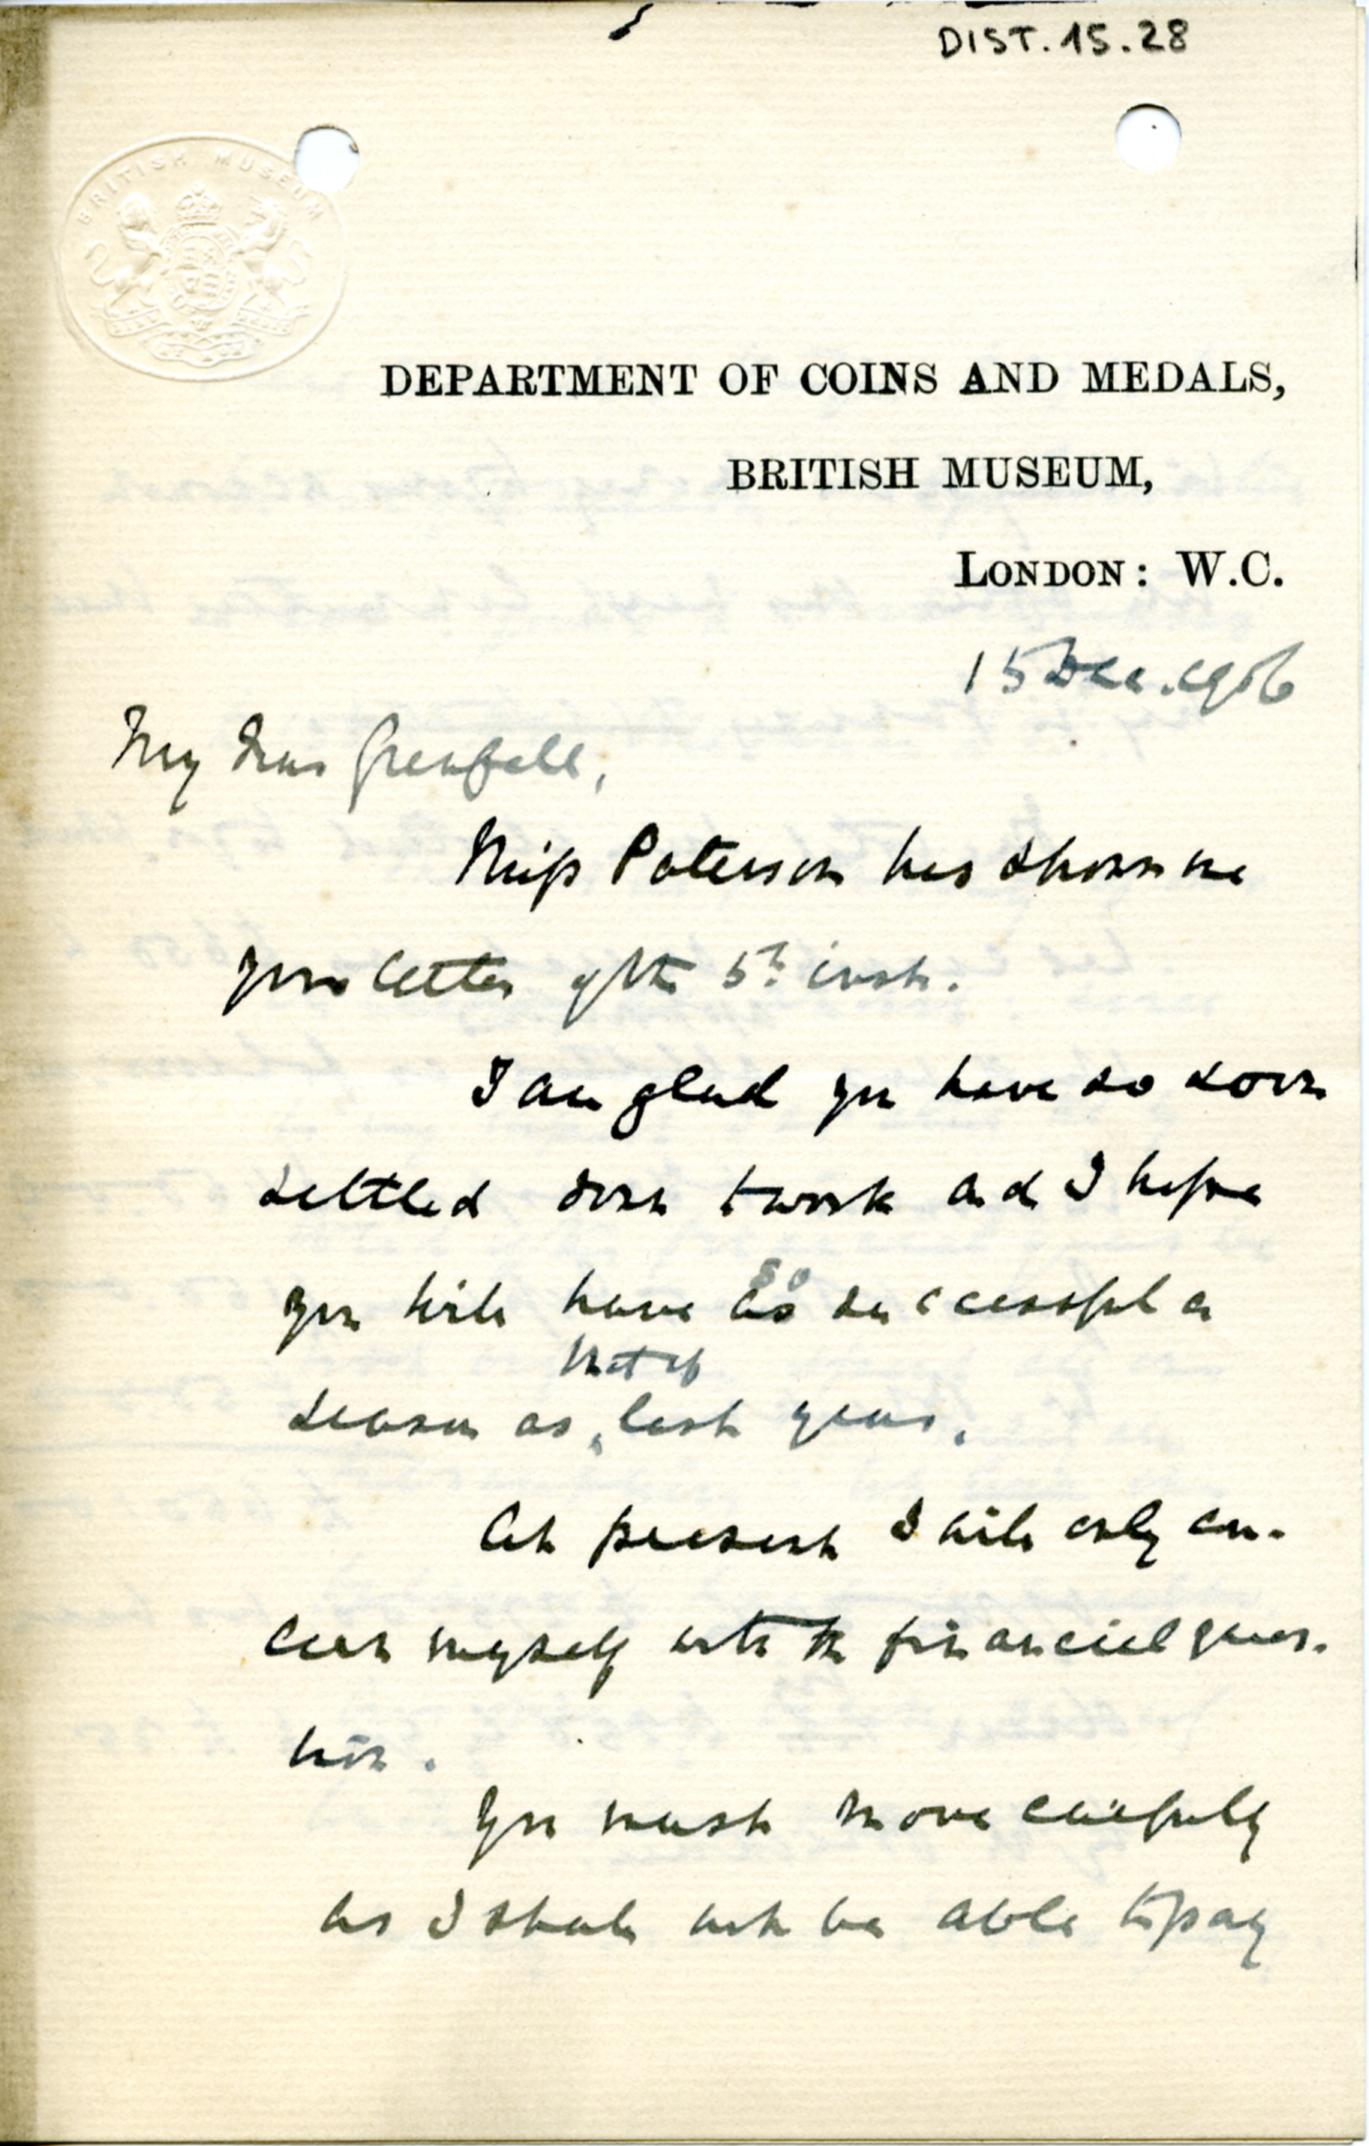 DIST. 15.28
BRITISH MUSEUM
DEPARTMENT OF COINS AND MEDALS,
BRITISH MUSEUM,
LONDON: W.C.
15 Dec. 1906
My dear Grenfell,
Miss Paterson has shown me
your letter of the 5th inst.
I am glad you have so soon
settled down to work and I hope
you will have as so successful a
that of
season as last year.
At present I will only con-
cern myself with the financial ques-
tion.
You must move carefully
as I shall not be able to pay